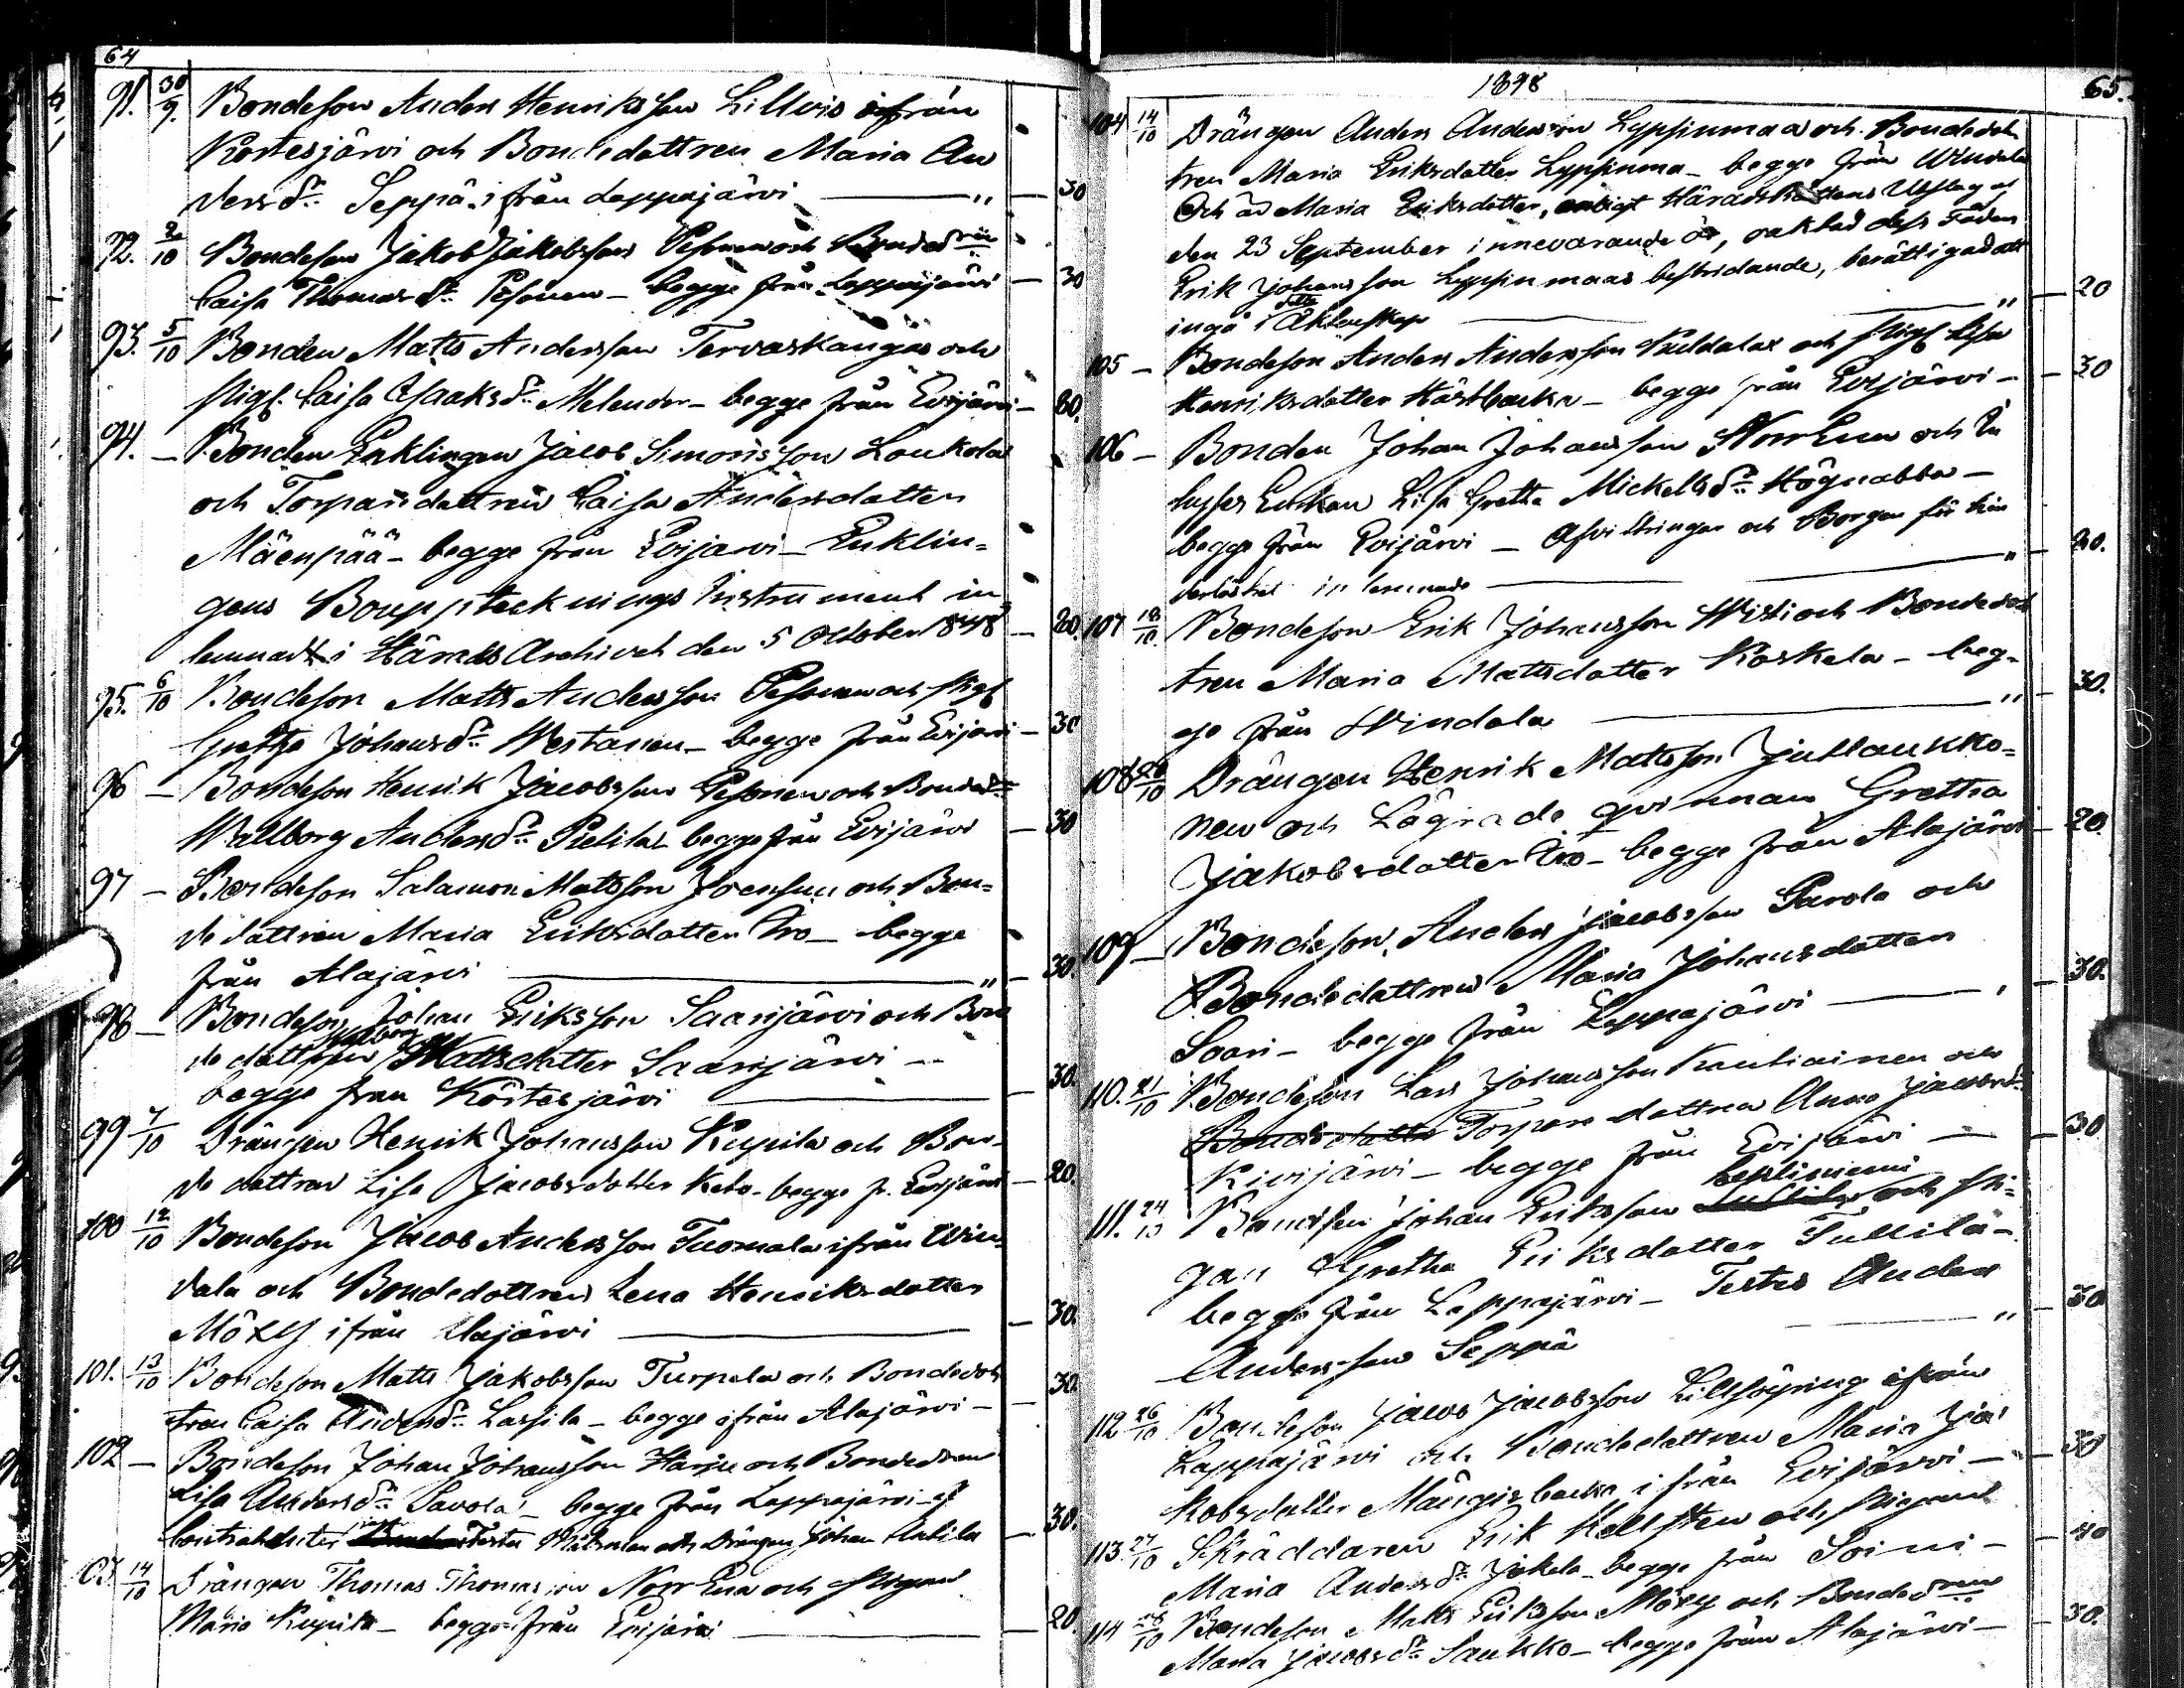 64
91. 30/9. Bondeson Anders Henriksson Lillvis ifrån
Kortesjärvi och Bondedottren Maria An
dersdr. Seppä ifrån Lappajärvi — „ — 30
92. 2/10 Bondeson Jakob Jakobsson Pesonen och Bondedren
Caisa Thomasdr. Pesonen — begge från Lappajärvi — 30
93. 5/10 Bonden Matts Andersson Tervaskangas och
Pigs. Caisa Isaaksdr. Melender — begge från Evijärvi — 60.
94. — Bonden Enklingen Jacob Simonsson Loukola
och Torparedottren Caisa Andersdotter
Mäenpää — begge från Evijärvi — Enklin=
gens Bouppteknings Instrument in
lemnadt i Härads Archivet den 5 October 1848 — 20.
95. 6/10 Bondeson Matts Andersson Pesonen och Pigs
Gretha Johansdr. Westanen — begge från Evijärvi — 30
96 — Bondeson Henrik Jacobsson Pesonen och Bondedr.
Wallborg Andersdr. Pietilä — begge från Evijärvi — 30
97 — Bondeson Salamon Mattsson Joensuu och Bon=
dedottren Maria Eriksdotter Aro — begge
från Alajärvi — „ — 30
98 — Bondeson Johan Eriksson Saarijärvi och Bon
dedottren Walborg Mattsdotter Saarijärvi —
begge från Kortesjärvi — 30.
99 7/10 Drängen Henrik Johansson Kupila och Bon-
dedottren Lisa Jacobsdotter Keto — begge fr. Evijärvi — 20.
100 12/10 Bondeson Jacob Andersson Tuomala ifrån Win-
dala och Bondedottren Lena Henriksdotter
Möxy ifrån Alajärvi — 30.
101. 13/10 Bondeson Matts Jakobsson Turpela och Bondedot
tren Caisa Andersdr. Lassila — begge ifrån Alajärvi — 30.
102 — Bondeson Johan Johansson Harju och Bondedren
Lisa Andersdr. Savola — begge från Lappajärvi — af
Contrahenter Testes och Drängen Johan — 30.
103 14/10 Drängen Thomas Thomasson Norr Ena och Pigan
Maria Kupila — begge från Evijärvi — 20
1848
65.
104 14/10 Drängen Anders Andersson Lyppinmaa och Bondedot
tren Maria Eriksdotter Lyppinma — begge från Windala
Och är Maria Eriksdotter, enligt HäradsRättens Utslag af
den 23 September innevarande år, oaktad dess Faders
Erik Johansson Lyppinmaas bestridande, berättigad att
ingå i detta Äktenskap — „ — 20
105 — Bondeson Anders Andersson Kuldalax och Pigs Lisa
Henriksdotter Hästbacka — begge från Evijärvi — 30
106 — Bonden Johan Johansson Norr Ena och In
hyses Enkan Lisa Gretha Mickelsdr. Högnabba —
begge från Evijärvi — Afvittringen och Borgen för hin
derlöshet inlemnade — „ — 20.
107 18/10. Bondeson Erik Johansson Wisti och Bondedot
tren Maria Mattsdotter Koskela — beg-
ge från Windala — „ — 30.
108 20/10 Drängen Henrik Mattsson Jutlaukko=
nen och Lägrade qvinnan Gretha
Jakobsdotter Aro — begge från Alajärvi — 20.
109 — Bondeson Anders Jacobsson Savola och
Bondedottren Maria Johansdotter
Soari — begge från Lappajärvi — 30.
110. 21/10 Bondeson Lars Johansson Kautiainen och
Bondedotter Torparedottren Anna Jacobsdr.
Kivijärvi — begge från Evijärvi — 30
111. 24/10 Bondeson Johan Eriksson och Pi=
gan Gretha Eriksdotter Tullilä —
begge från Lappajärvi — Testes Anders
Andersson Seppä — „ — 30
112 26/10 Bondeson Jacob Jacobsson Lillhöyring ifrån
Lappajärvi och Bondedottren Maria Ja
kobsdotter Mångisbacka ifrån Evijärvi — 30
113 27/10 Skräddaren Erik Hellsten och Pigan
Maria Andersdr. Jokela — begge från Soini — 40
114 28/10 Bondeson Matts Eriksson Möxy och Bondedren
Maria Jacobsdr. Saukko — begge från Alajärvi — 30.